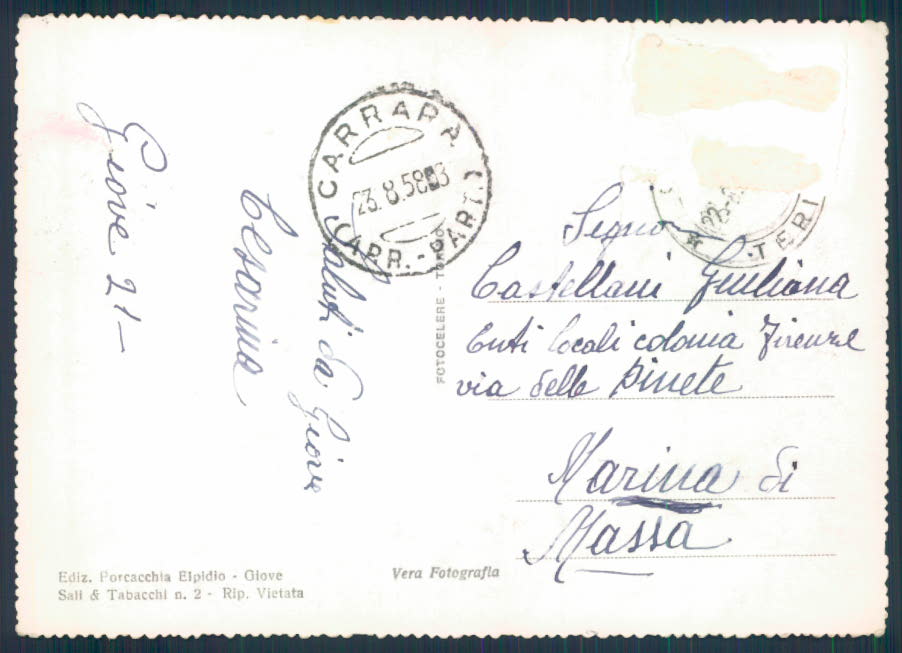 Giove 21-
Saluti da Giove
Cesarina
CARRARA
23.8.58 3
(ARR.-PART.)
TERI
FOTOCELERE - TORINO
Signora
Castellani Giuliana
Enti locali colonia Firenze
via delle pinete
Marina di
Massa
Ediz. Porcacchia Elpidio - Giove
Sali & Tabacchi n. 2 - Rip. Vietata
Vera Fotografia